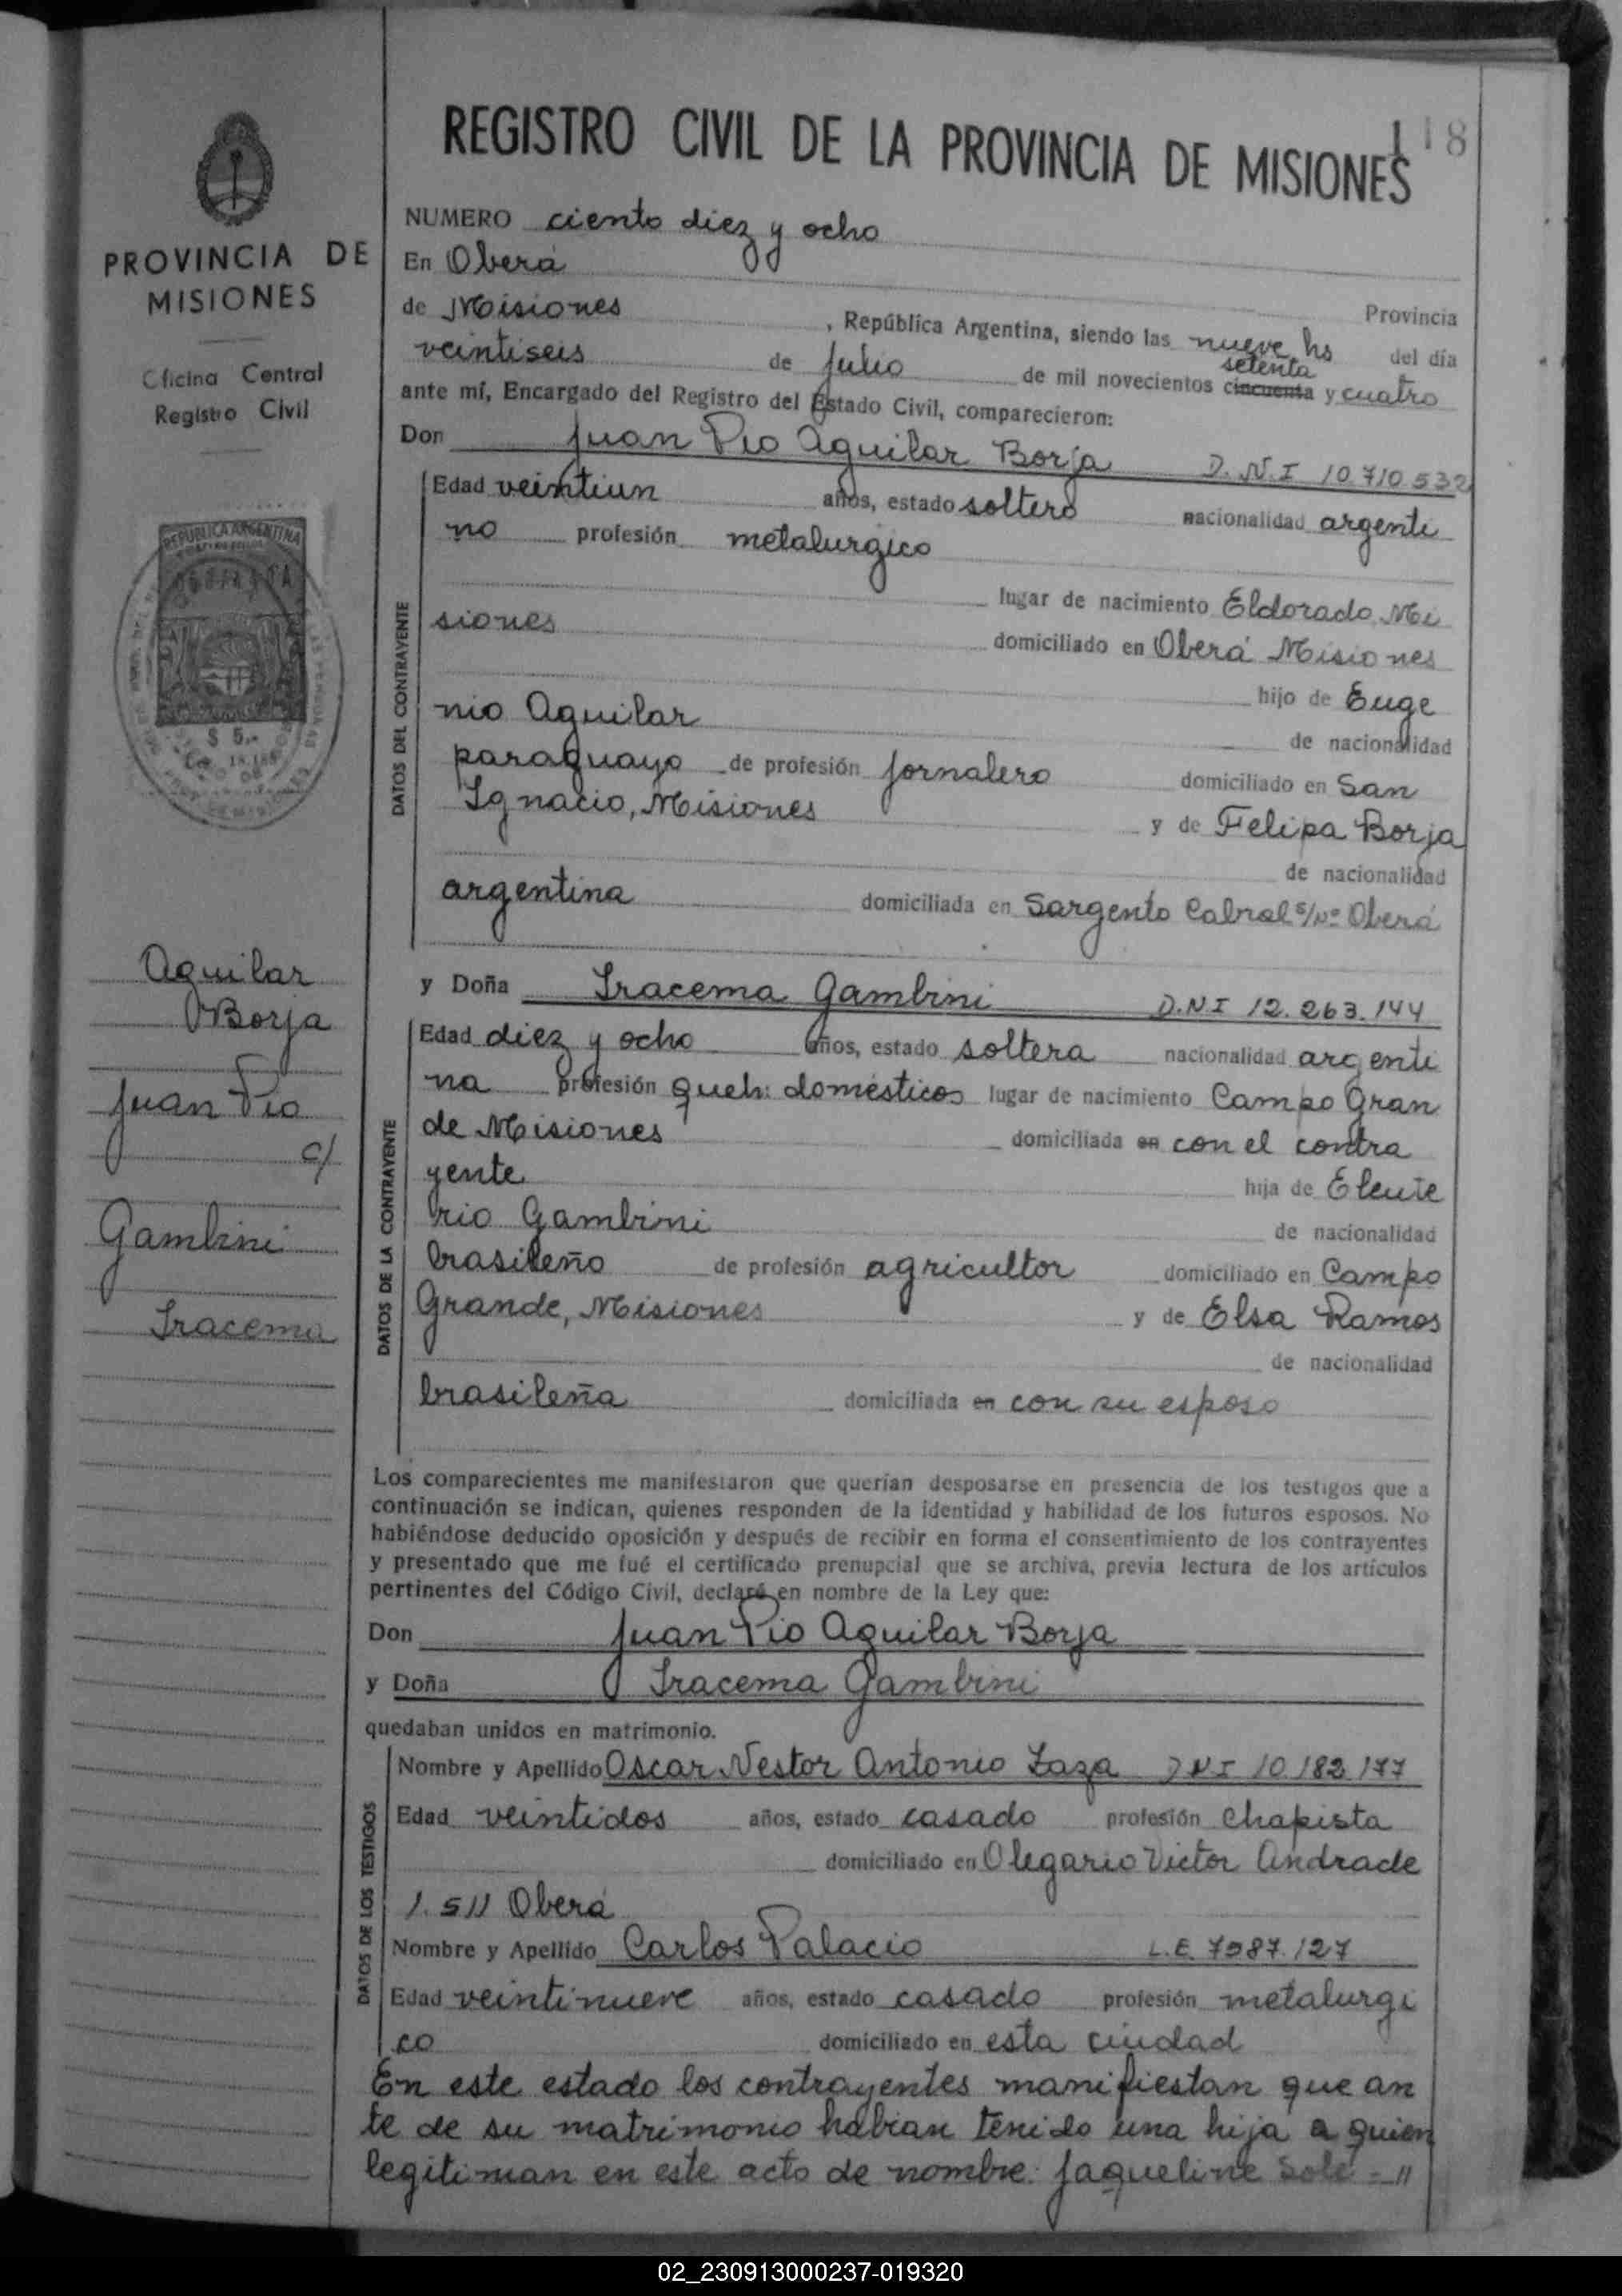 REGISTRO CIVIL DE LA PROVINCIA DE MISIONES
118
NUMERO ciento diez y ocho
En Oberá
Provincia
de Misiones, República Argentina, siendo las nueve hs del día
veintiseis de Julio de mil novecientos cincuenta setenta y cuatro
ante mí, Encargado del Registro del Estado Civil, comparecieron:
Don Juan Pio Aguilar Borja D.N.I 10.710.532
Edad veintiun años, estado soltero nacionalidad argenti
no profesión metalurgico
lugar de nacimiento Eldorado, Mi
siones domiciliado en Oberá Misiones
hijo de Euge
nio Aguilar de nacionalidad
paraguayo de profesión Jornalero domiciliado en San
Ignacio, Misiones y de Felipa Borja
de nacionalidad
argentina domiciliada en Sargento Cabral s/Nº Oberá
y Doña Iracema Gambini D.N.I 12.263.144
Edad diez y ocho años, estado soltera nacionalidad argenti
na profesión queh: domésticos lugar de nacimiento Campo Gran
de Misiones domiciliada en con el contra
yente hija de Eleute
rio Gambini de nacionalidad
brasileño de profesión agricultor domiciliado en Campo
Grande, Misiones y de Elsa Ramos
de nacionalidad
brasileña domiciliada en con su esposo
Los comparecientes me manifestaron que querían desposarse en presencia de los testigos que a
continuación se indican, quienes responden de la identidad y habilidad de los futuros esposos. No
habiéndose deducido oposición y después de recibir en forma el consentimiento de los contrayentes
y presentado que me fué el certificado prenupcial que se archiva, previa lectura de los artículos
pertinentes del Código Civil, declaré en nombre de la Ley que:
Don Juan Pio Aguilar Borja
y Doña Iracema Gambini
quedaban unidos en matrimonio.
Nombre y Apellido Oscar Nestor Antonio Zaza DNI 10.182.177
Edad veintidos años, estado casado profesión Chapista
domiciliado en Olegario Victor Andrade
1.511 Oberá
Nombre y Apellido Carlos Palacio L.E. 7987.127
Edad veintinueve años, estado casado profesión metalurgi
co domiciliado en esta ciudad
En este estado los contrayentes manifiestan que an
te de su matrimonio habian tenido una hija a quien
legitiman en este acto de nombre: Jaqueline Sole = //
DATOS DEL CONTRAYENTE
DATOS DE LA CONTRAYENTE
DATOS DE LOS TESTIGOS
PROVINCIA DE
MISIONES
Oficina Central
Registro Civil
REPUBLICA ARGENTINA
$ 5.-
Aguilar
Borja
Juan Pio
c/
Gambini
Iracema
02_230913000237-019320